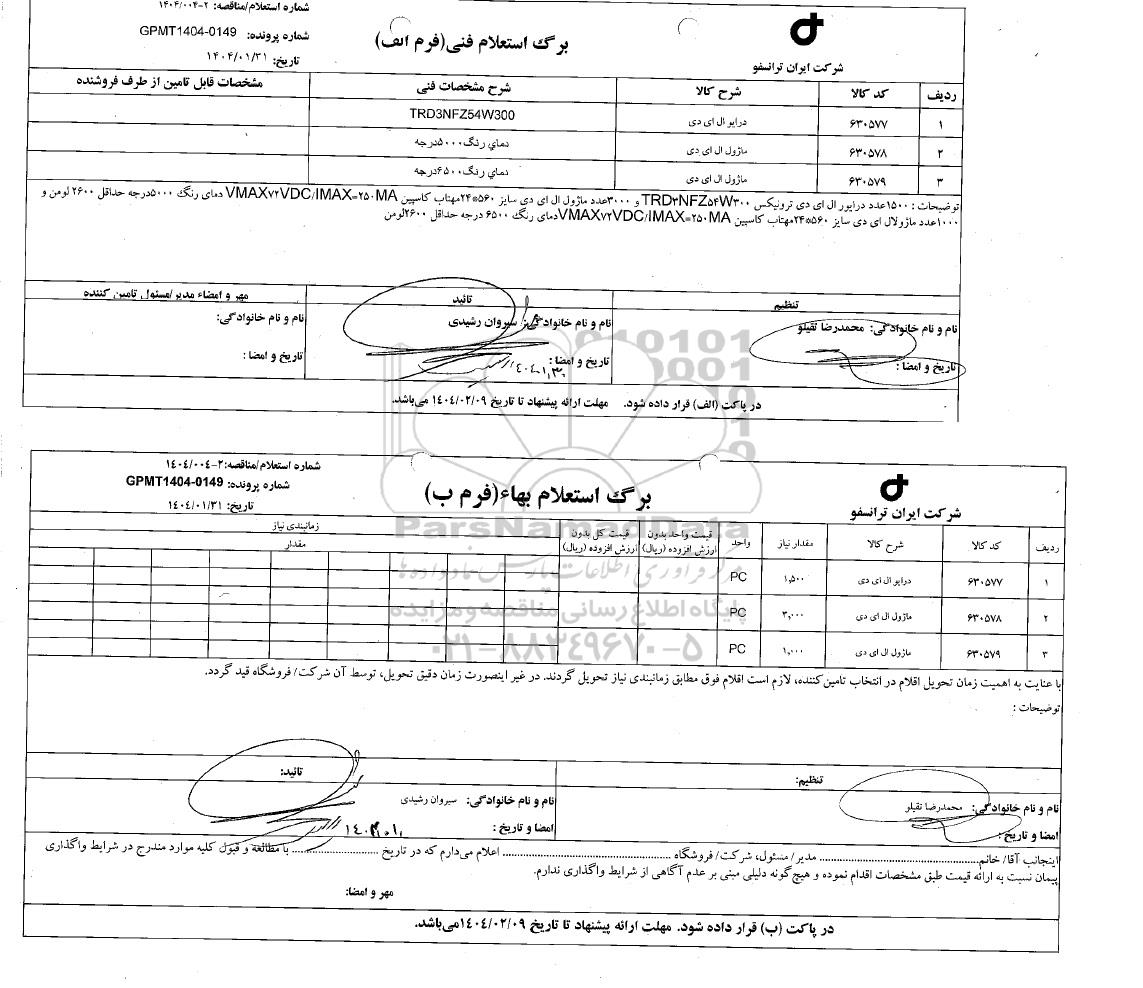 شماره استعلام/مناقصه: ۲-۱۴۰۴/۰۰۴
برگ استعلام فنی(فرم الف)
شماره پرونده: GPMT1404-0149
تاریخ: ۱۴۰۴/۰۱/۳۱
شرکت ایران ترانسفو
ردیف کد کالا شرح کالا شرح مشخصات فنی مشخصات قابل تامین از طرف فروشنده
۱ ۶۳۰۵۷۷ درایو ال ای دی TRD3NFZ54W300
۲ ۶۳۰۵۷۸ ماژول ال ای دی دمای رنگ۵۰۰۰درجه
۳ ۶۳۰۵۷۹ ماژول ال ای دی دمای رنگ۶۵۰۰درجه
توضیحات : ۱۵۰۰عدد درایور ال ای دی ترونیکس TRD۳NFZ۵۴W۳۰۰ و ۳۰۰۰عدد ماژول ال ای دی سایز ۵۶۰*۲۴مهتاب کاسپین VMAX۷۲VDC/IMAX=۲۵۰MA دمای رنگ ۵۰۰۰درجه حداقل ۲۶۰۰ لومن و
۱۰۰۰عدد ماژولال ای دی سایز ۵۶۰*۲۴مهتاب کاسپین VMAX۷۲VDC/IMAX=۲۵۰MAدمای رنگ ۶۵۰۰ درجه حداقل ۲۶۰۰لومن
تنظیم تائید مهر و امضاء مدیر/مسئول تامین کننده
نام و نام خانوادگی: محمدرضا تقیلو نام و نام خانوادگی: سیروان رشیدی نام و نام خانوادگی:
تاریخ و امضا : تاریخ و امضا : تاریخ و امضا :
در پاکت (الف) قرار داده شود. مهلت ارائه پیشنهاد تا تاریخ ۱۴۰۴/۰۲/۰۹ می‌باشد.
شماره استعلام/مناقصه:۲-۱۴۰۴/۰۰۴
برگ استعلام بهاء(فرم ب)
شماره پرونده: GPMT1404-0149
تاریخ: ۱۴۰۴/۰۱/۳۱
شرکت ایران ترانسفو
ردیف کد کالا شرح کالا مقدار نیاز واحد قیمت واحد بدون ارزش افزوده (ریال) قیمت کل بدون ارزش افزوده (ریال) زمانبندی نیاز
مقدار
۱ ۶۳۰۵۷۷ درایو ال ای دی ۱,۵۰۰ PC
۲ ۶۳۰۵۷۸ ماژول ال ای دی ۳,۰۰۰ PC
۳ ۶۳۰۵۷۹ ماژول ال ای دی ۱,۰۰۰ PC
با عنایت به اهمیت زمان تحویل اقلام در انتخاب تامین‌کننده، لازم است اقلام فوق مطابق زمانبندی نیاز تحویل گردند. در غیر اینصورت زمان دقیق تحویل، توسط آن شرکت/ فروشگاه قید گردد.
توضیحات :
تنظیم: تائید:
نام و نام خانوادگی: محمدرضا تقیلو نام و نام خانوادگی: سیروان رشیدی
امضا و تاریخ : امضا و تاریخ :
اینجانب آقا/ خانم........................ مدیر/ مسئول، شرکت/ فروشگاه ........................ اعلام می‌دارم که در تاریخ ........................ با مطالعه و قبول کلیه موارد مندرج در شرایط واگذاری
پیمان نسبت به ارائه قیمت طبق مشخصات اقدام نموده و هیچ‌گونه دلیلی مبنی بر عدم آگاهی از شرایط واگذاری ندارم.
مهر و امضا:
در پاکت (ب) قرار داده شود. مهلت ارائه پیشنهاد تا تاریخ ۱۴۰۴/۰۲/۰۹می‌باشد.
ParsNamadData
مرکز فرآوری اطلاعات پارس نماد داده ها
پایگاه اطلاع رسانی مناقصه و مزایده
۰۲۱-۸۸۳۴۹۶۷۰-۵